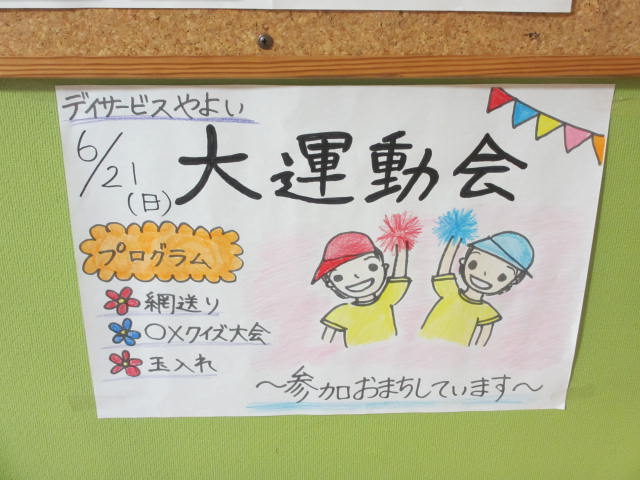 デイサービスやよい
6/21(日)
大運動会
プログラム
網送り
○×クイズ大会
玉入れ
～参加おまちしています～